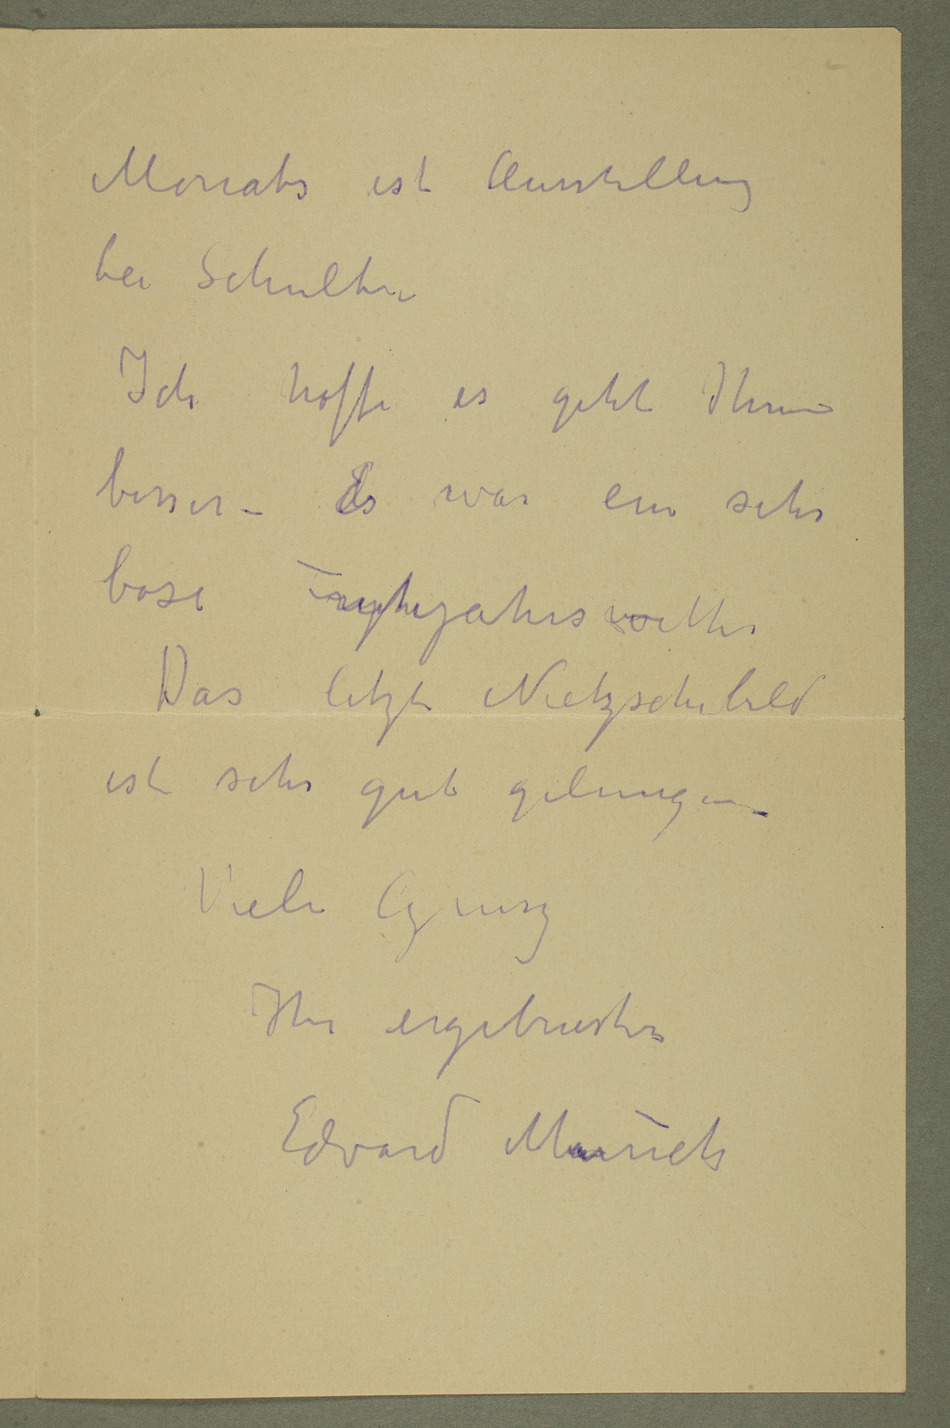 Monats ist Ausstellung
bei Schulte.
Ich hoffe es geht Ihnen
besser – Es war ein sehr
bose Fruhjahrswetter
Das letzte Nietzschebild
ist sehr gut gelungen –
Viele Grusz
Ihr ergebenster
Edvard Munch